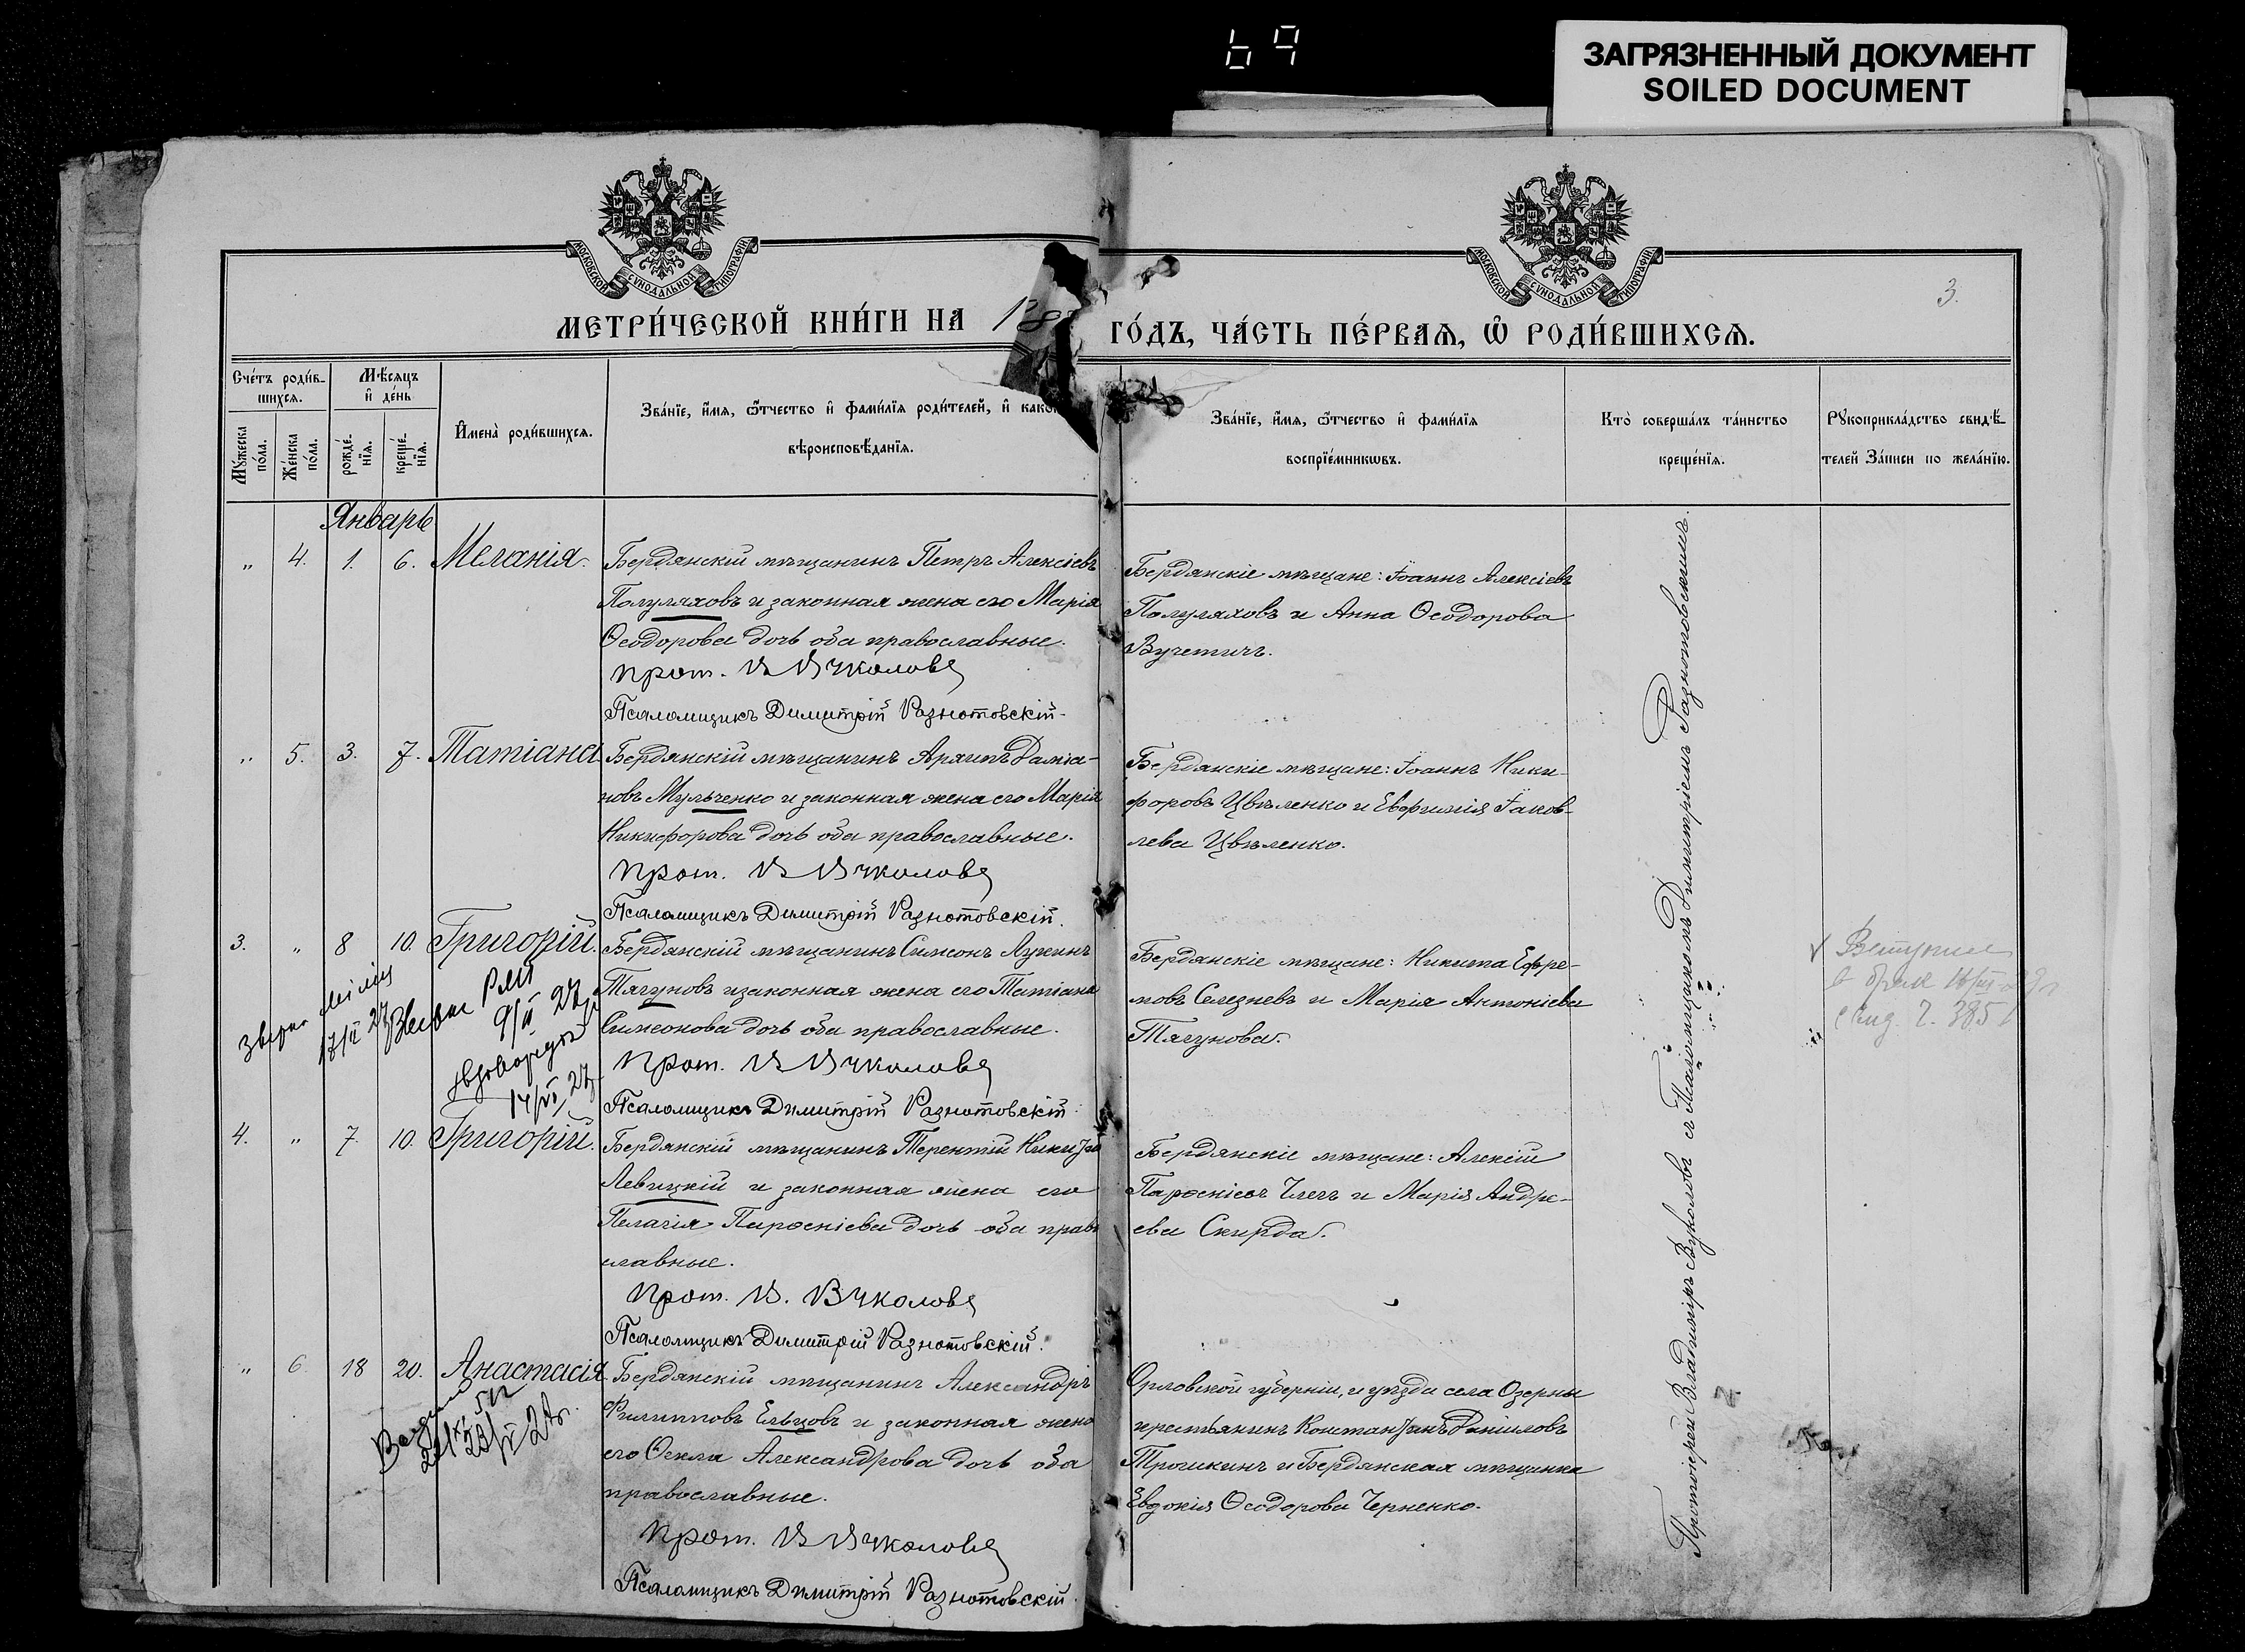 69
ЗАГРЯЗНЕННЫЙ ДОКУМЕНТ
SOILED DOCUMENT
МОСКОВСКОЙ СУНОДАЛЬНОЙ ТИПОГРАФІИ
МОСКОВСКОЙ СУНОДАЛЬНОЙ ТИПОГРАФІИ
3.
МЕТРИ́ЧЕСКОЙ КНИ́ГИ НА 18
ГО́ДЪ, ЧА́СТЬ ПЕ́РВАѦ, Ѡ҆ РОДИ́ВШИХСѦ.
Счётъ роди́в-
шихсѧ.
Мꙋ́жеска по́ла.
Же́нска по́ла.
Мѣ́сѧцъ
и҆ де́нь
рожде́-нїѧ.
креще́-нїѧ.
И҆мена̀ роди́вшихсѧ.
Зва́нїе, и҆́мѧ, ѻ҆́тчество и҆ фами́лїѧ роди́телей, и҆ како
вѣроисповѣ́данїѧ.
Зва́нїе, и҆́мѧ, ѻ҆́тчество и҆ фами́лїѧ
воспрїе́мникѡвъ.
Кто̀ соверша́лъ та́инство
креще́нїѧ.
Рꙋкоприкла́дство свидѣ́-
телей За́писи по жела́нїю.
Январь
" 4. 1. 6. Меланія.
Бердянскій мѣщанинъ Петръ Алексіевъ
Полуляховъ и законная жена его Марія
Ѳеодорова дочь оба православные.
Прот. В Вуколовъ
Псаломщикъ Димитрій Разнотовскій.
Бердянскіе мѣщане: Іоаннъ Алексіевъ
Полуляховъ и Анна Ѳеодорова
Вучетичъ.
" 5. 3. 7. Татіана
Бердянскій мѣщанинъ Даміа-
новъ Мульченко и законная жена его Марія
Никифорова дочь оба православные.
Прот. В Вуколовъ
Псаломщикъ Димитрій Разнотовскій.
Бердянскіе мѣщане: Іоаннъ Ники-
форовъ Цвѣленко и Евфимія Іаков-
лева Цвѣленко.
3. " 8 10. Григорій.
Бердянскій мѣщанинъ Симеонъ Лукинъ
Тягуновъ и законная жена его Татіана
Симеонова дочь оба православные.
Прот. В Вуколовъ
Псаломщикъ Димитрій Разнотовскій
Бердянскіе мѣщане: Никита Ефре-
мовъ Селезневъ и Марія Антоніева
Тягунова.
Вступил
в брак
4. " 7. 10. Григорій.
Бердянскій мѣщанинъ Терентій
Левицкій и законная жена его
Пелагія Парѳеніева дочь оба право
славные.
Прот. В. Вуколовъ
Псаломщикъ Димитрій Разнотовскій.
Бердянскіе мѣщане: Алексій
Парѳеніевъ и Марія Андре-
ева Скирда.
" 6. 18 20. Анастасія
Бердянскій мѣщанинъ Александръ
Филипповъ Ельцовъ и законная жена
его Ѳекла Александрова дочь оба
православные.
Прот. В Вуколовъ
Псаломщикъ Димитрій Разнотовскій.
Орловской губерніи, и уѣзда села Озерны
крестьянинъ Константинъ Даниловъ
Трошкинъ и Бердянская мѣщанка
Евдокія Ѳеодорова Черненко.
Протоіерей Владиміръ Вуколовъ съ Псаломщикомъ Димитріемъ Разнотовскимъ.